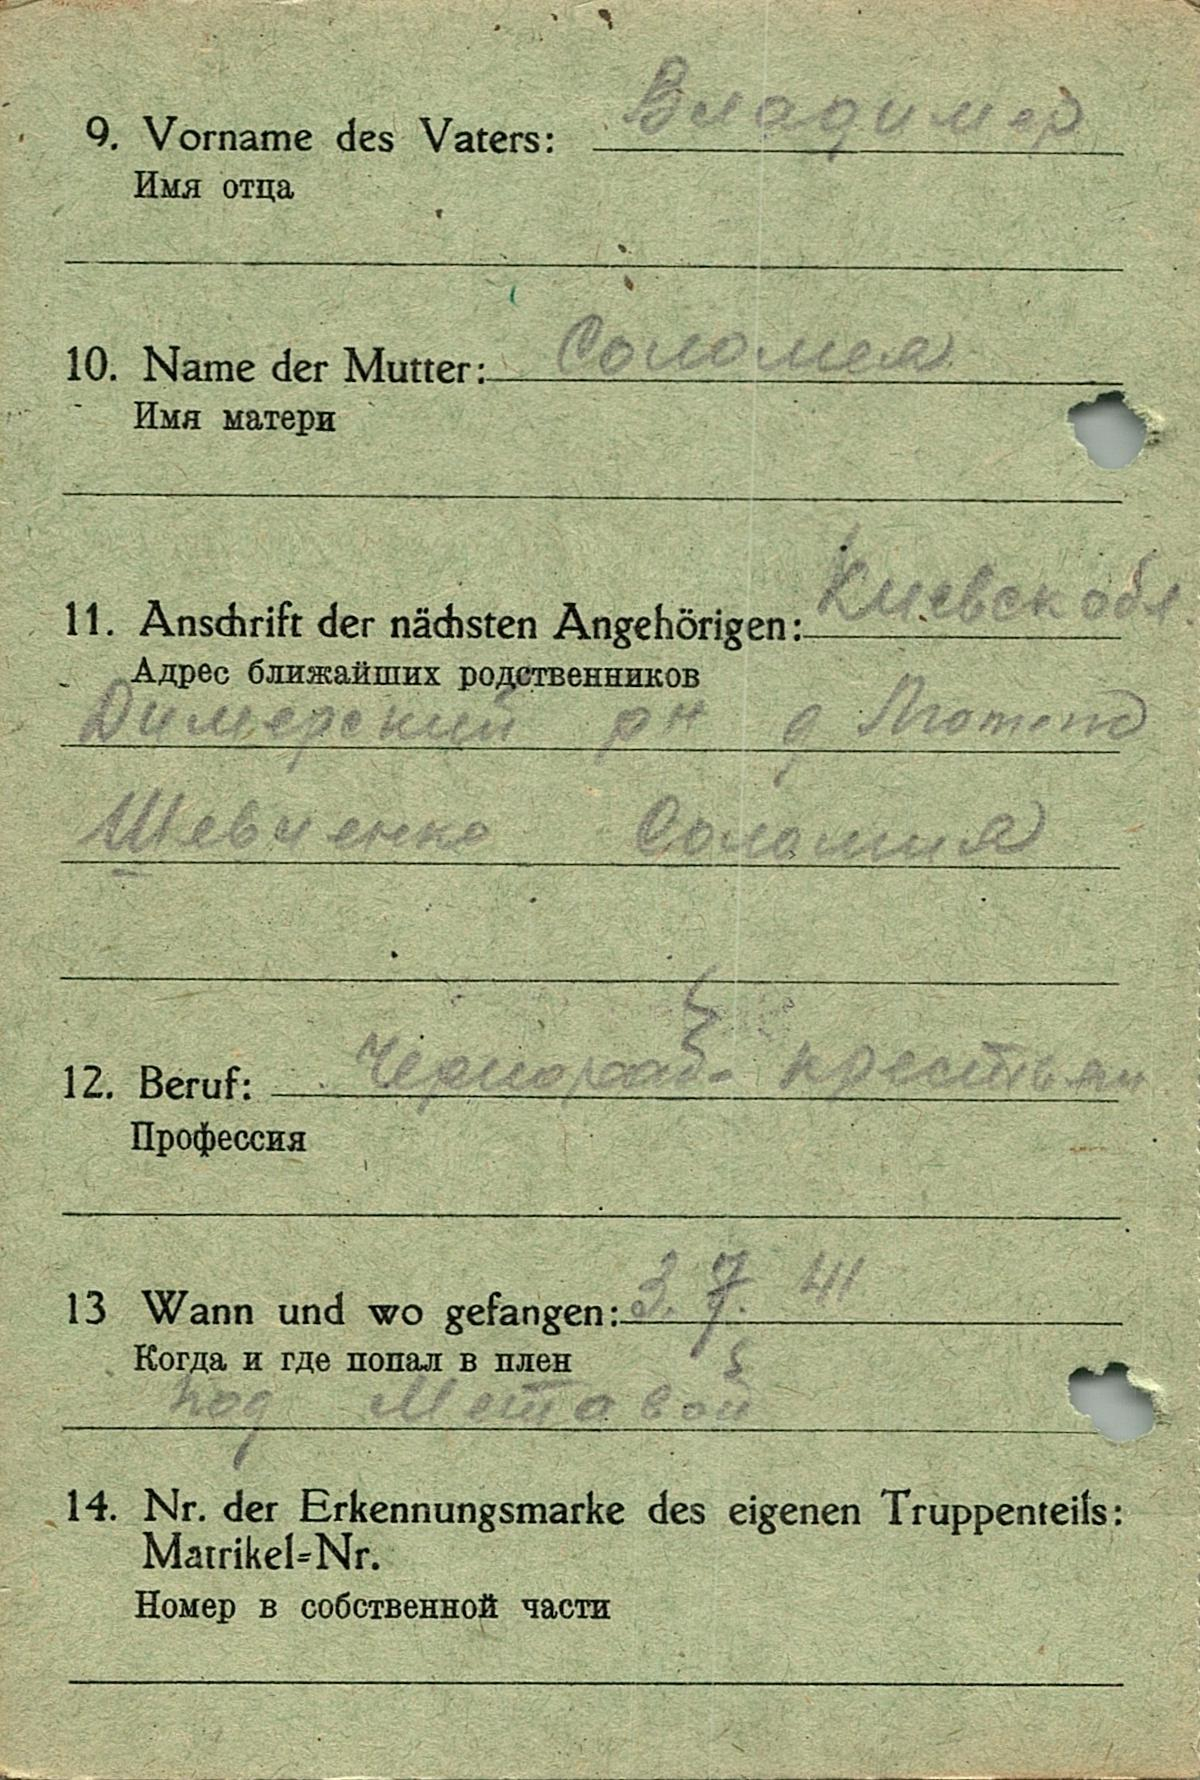 9. Vorname des Vaters: Владимер
Имя отца
10. Name der Mutter: Соломея
Имя матери
11. Anschrift der nächsten Angehörigen: Киевск обл.
Адрес ближайших родственников
Димерский рн д
Шевченко Соломия
12. Beruf: Чернораб. крестьян
Профессия
13 Wann und wo gefangen: 3. 7. 41
Когда и где попал в плен
под
14. Nr. der Erkennungsmarke des eigenen Truppenteils:
Matrikel=Nr.
Номер в собственной части